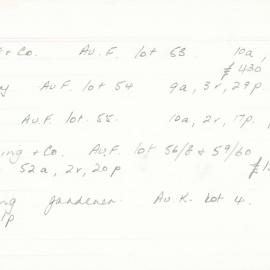 + Co. Au. F. lot 53. 10a,
£430
y Au F. lot 54 9a, 3r, 29p
Au F. lot 55. 10a, 2r, 17p,
ing + Co. Au. F. lot 56/8 & 59/60
52a, 2r, 20p £1
ng gardener. Au. K. lot 4.
1p